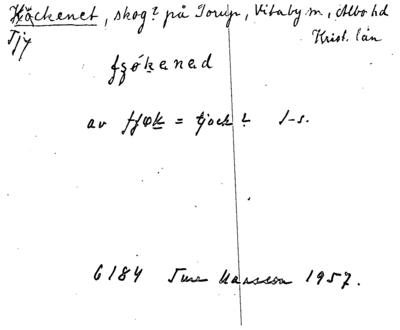 Käckenet, skog? på Torup, Vitaby sn, Albo hd
Krist. län
fʒøkenad
av tjøk = tjock? I-s.
6184 Ture Hansson 1957.